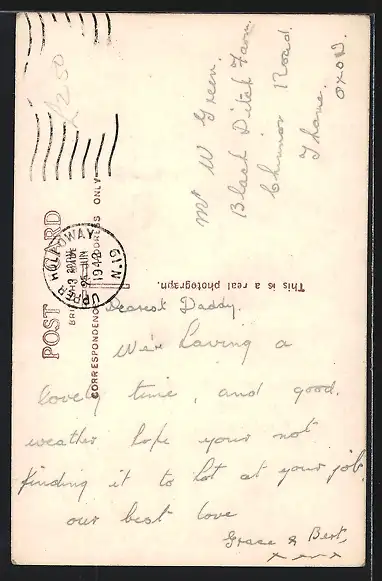 £2.50
POST CARD
CORRESPONDENCE
ADDRESS ONLY
UPPER HOLLOWAY
JUN
1942
N.19
This is a real photograph.
Mr W Green.
Black Ditch Farm.
Chinnor Road.
Thame.
OXON.
Dearest Daddy.
We're having a
lovely time, and good.
weather hope your not
finding it to hot at your job
our best love
Grace & Bert,
x x x x